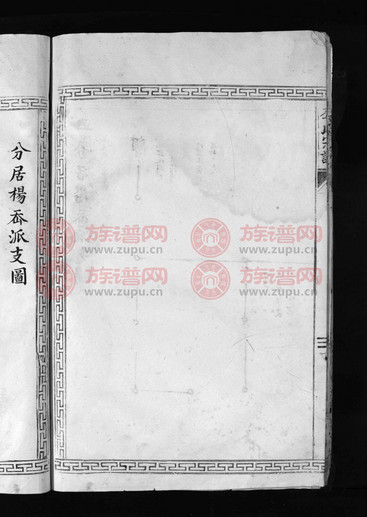 分居楊岙派支圖
族谱网
www.zupu.cn
族谱网
www.zupu.cn
族谱网
www.zupu.cn
族谱网
www.zupu.cn